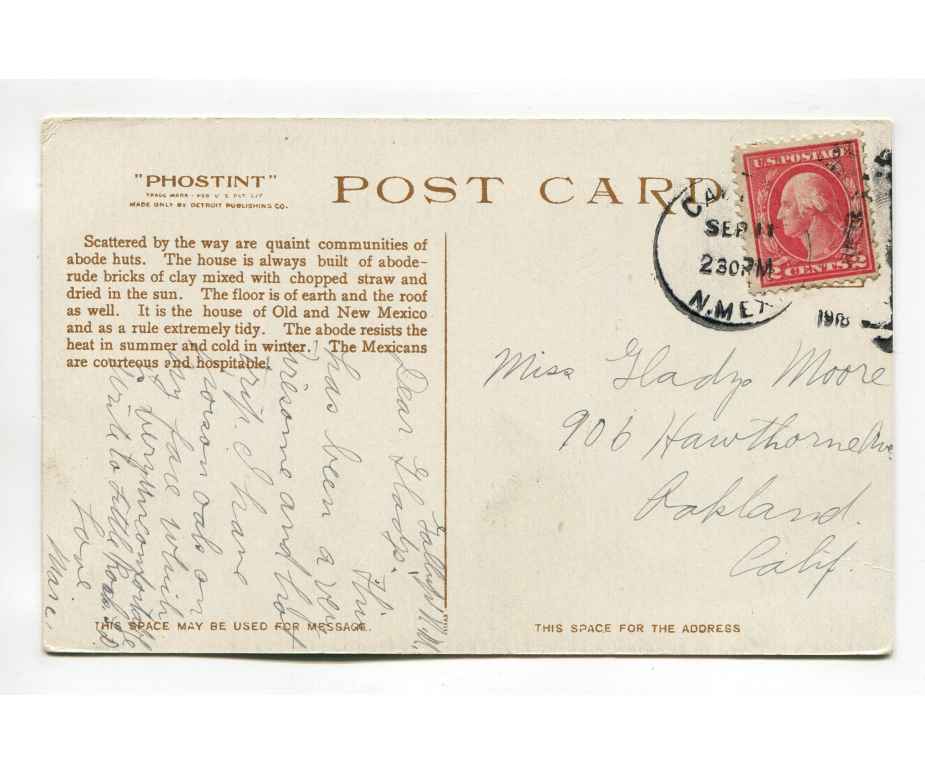 "PHOSTINT"
TRADE MARK - REG U S PAT OFF
MADE ONLY BY DETROIT PUBLISHING CO.
POST CARD
Scattered by the way are quaint communities of
abode huts. The house is always built of abode-
rude bricks of clay mixed with chopped straw and
dried in the sun. The floor is of earth and the roof
as well. It is the house of Old and New Mexico
and as a rule extremely tidy. The abode resists the
heat in summer and cold in winter. The Mexicans
are courteous and hospitable.
U.S. POSTAGE
2 CENTS 2
SEP 11
230PM
N.MEX.
1918
Miss Gladys Moore
906 Hawthorne Ave.
Oakland.
Calif.
Gallup N.M.
Dear Gladys.
This
has been a very
tiresome and hot
trip. I have
poison oak on
my face which
is very uncomfortable
Write to Little Rock
Love
Marie
THIS SPACE MAY BE USED FOR MESSAGE.
THIS SPACE FOR THE ADDRESS